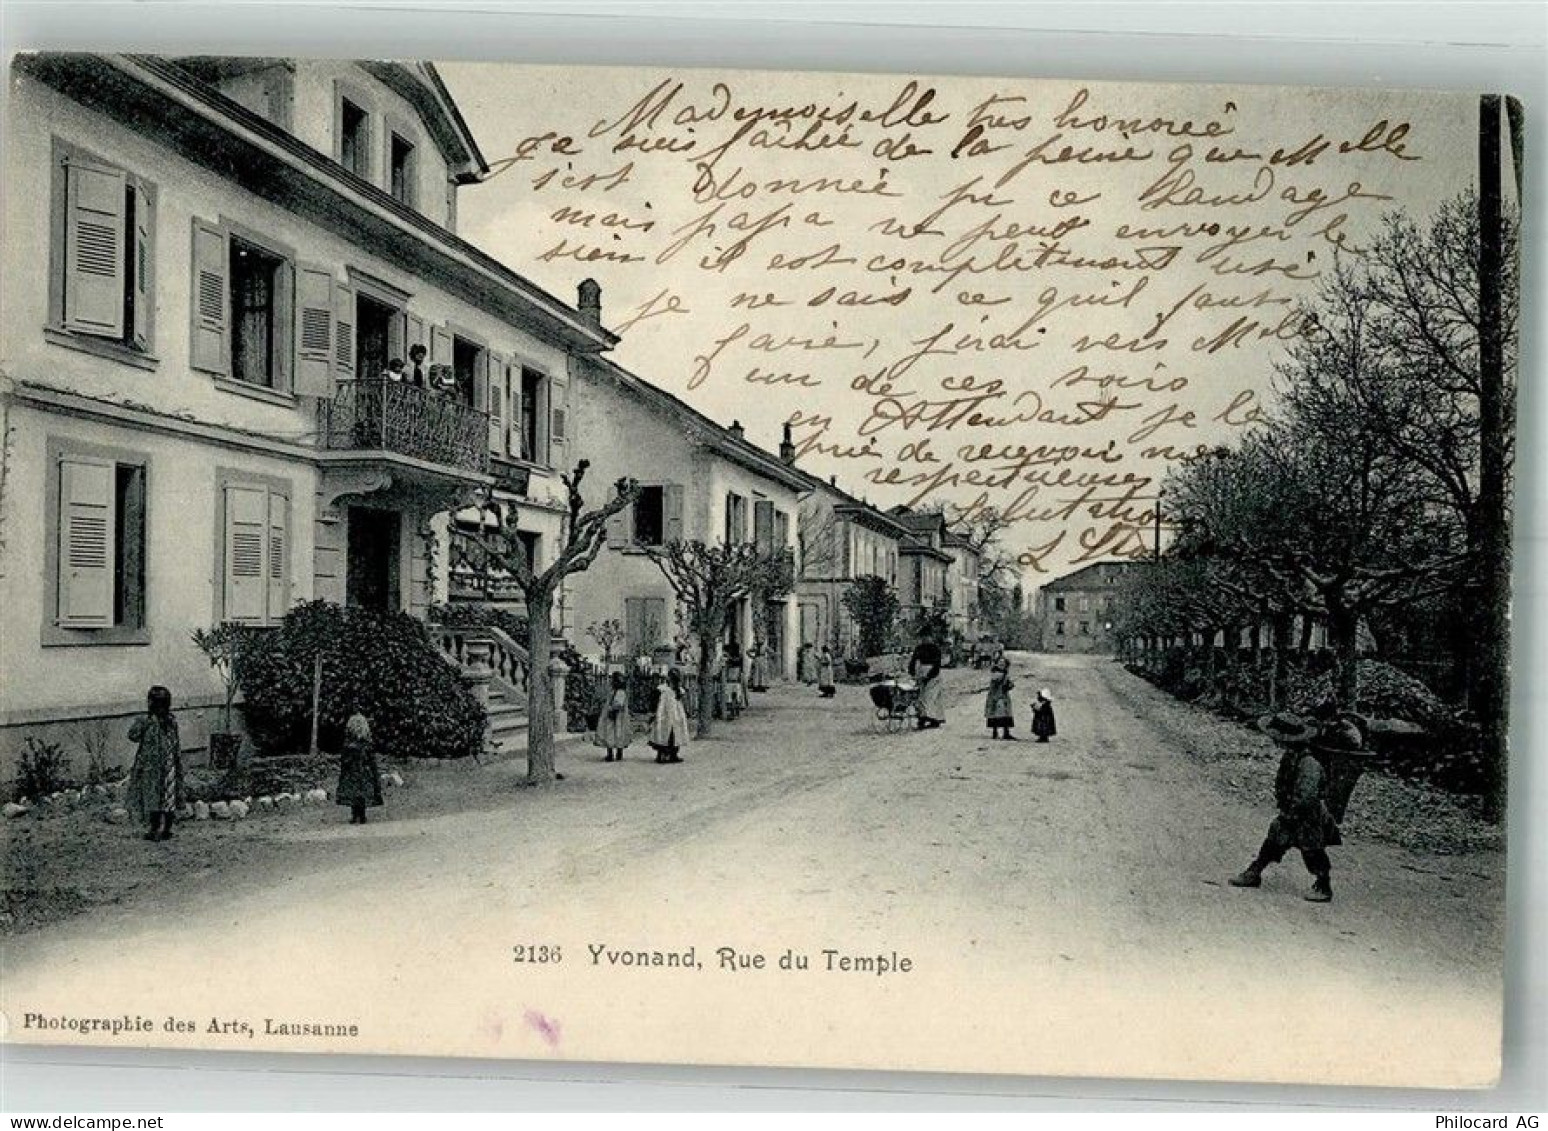 Mademoiselle très honorée
Je suis fâchée de la peine que Melle
s'est donnée pr ce bandage
mais papa ne peut envoyer le
sien il est complitement usé
je ne sais ce qu'il faut
faire, j'irai vers Melle
l'un de ces soirs
en Attendant je le
prie de recevoir mes
respectueuses
Salutations
2136 Yvonand, Rue du Temple
Photographie des Arts, Lausanne
Philocard AG